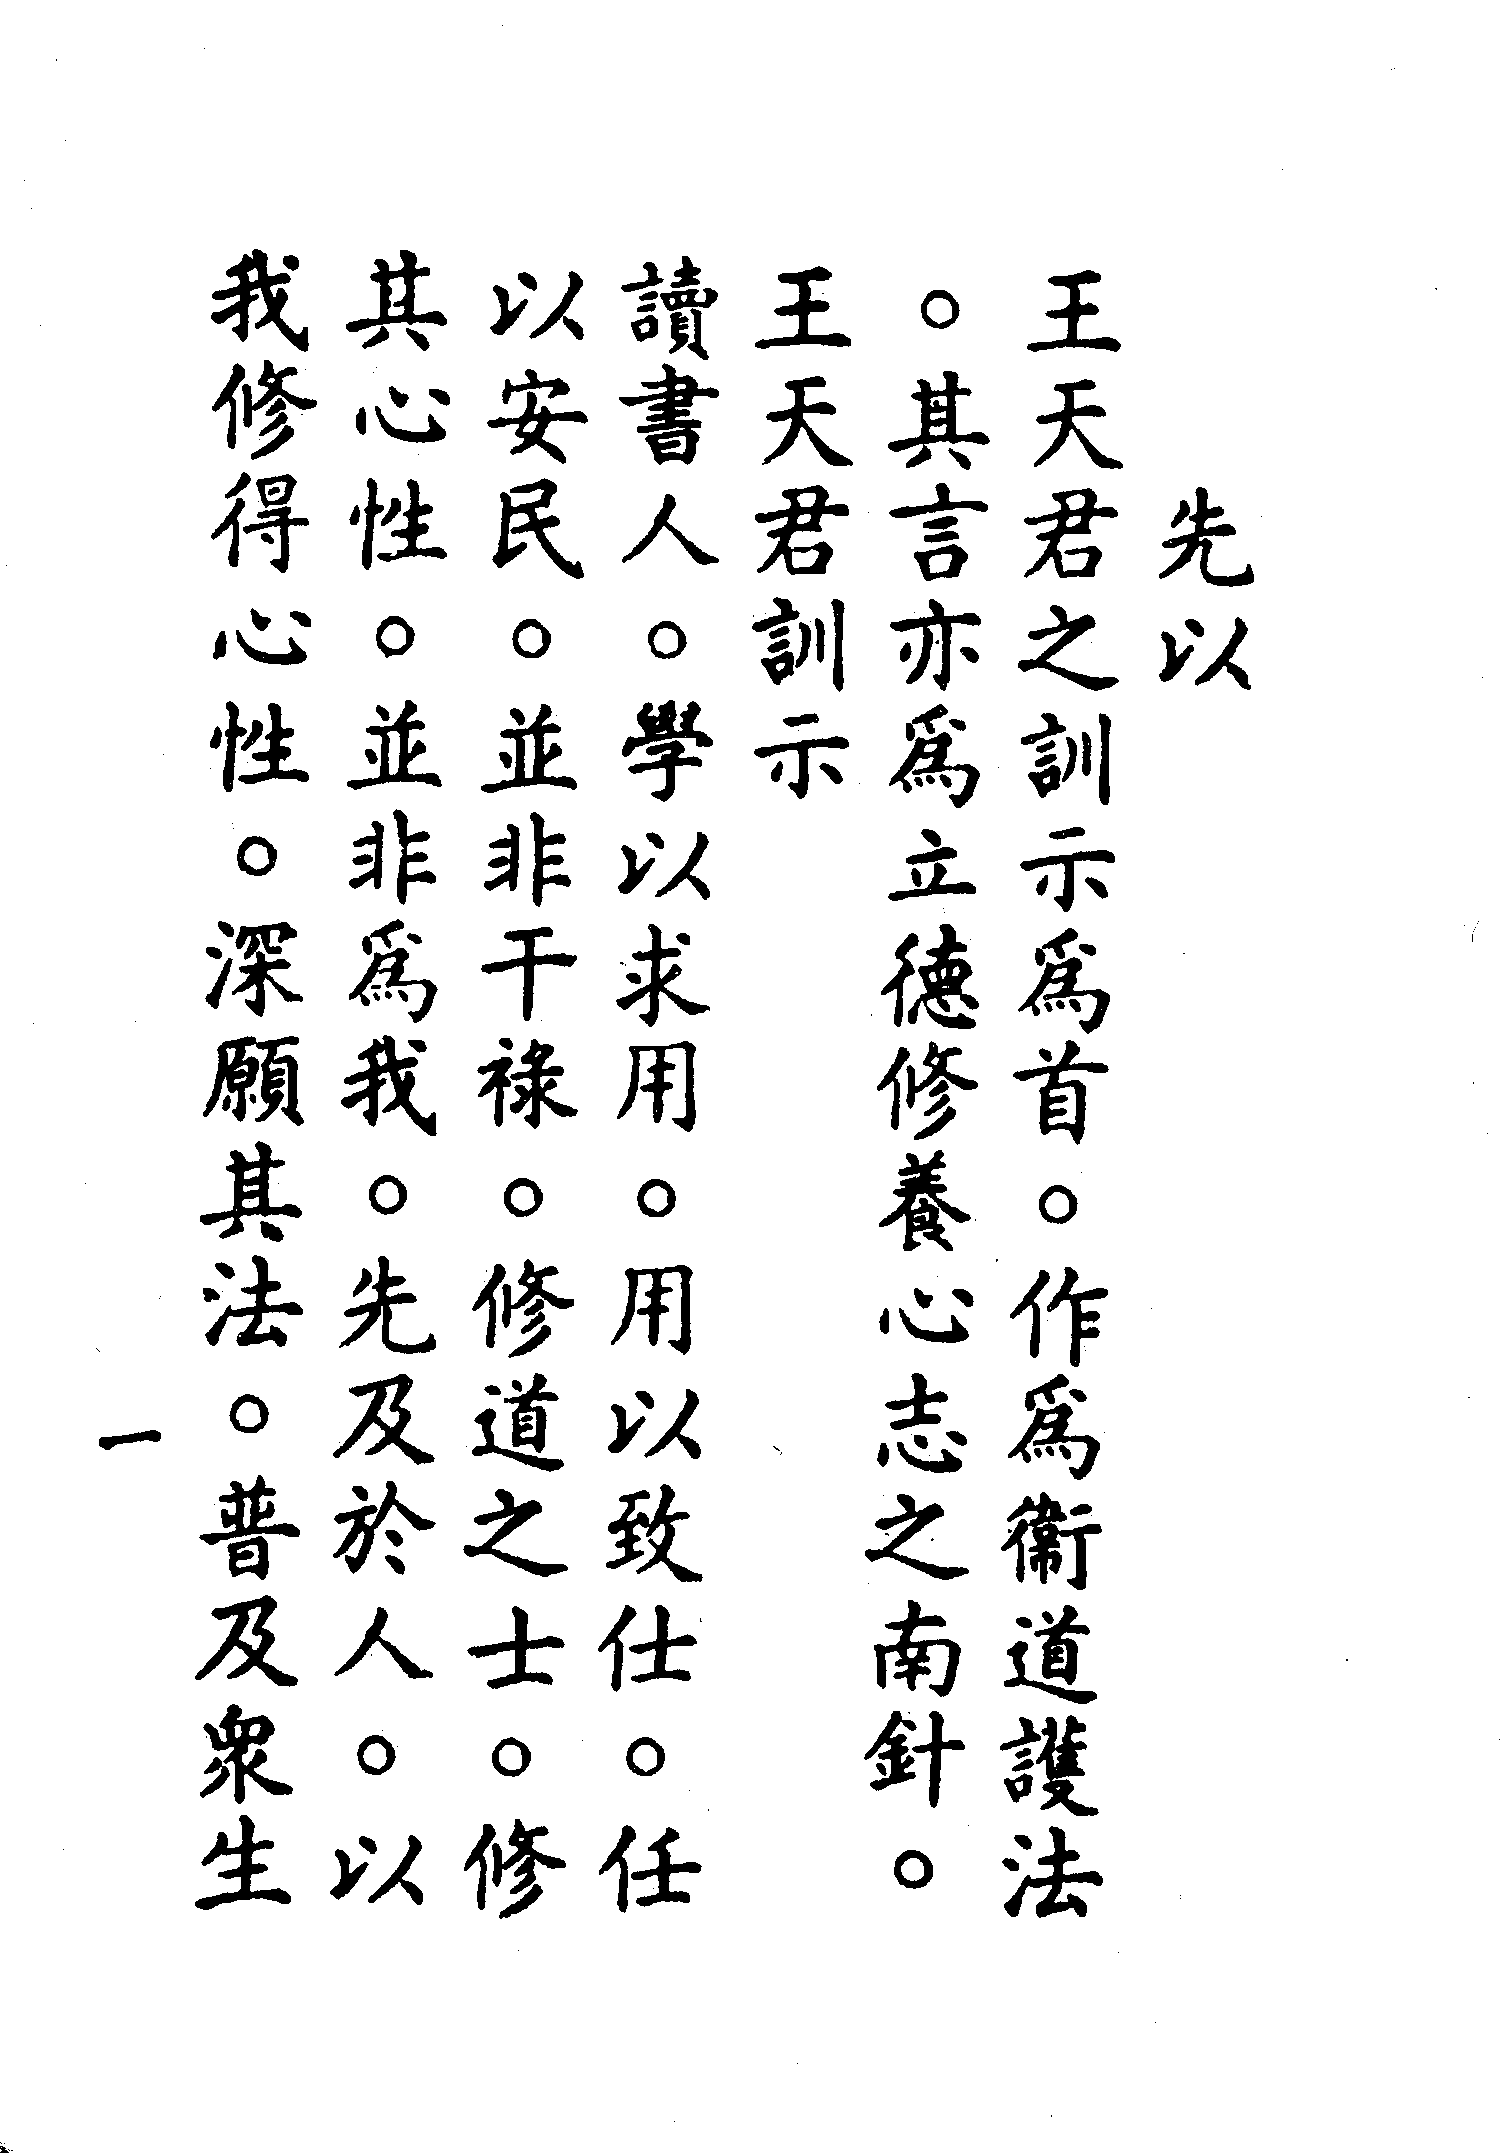 先以
王天君之訓示爲首。作爲衞道護法
。其言亦爲立德修養心志之南針。
王天君訓示
讀書人。學以求用。用以致仕。任
以安民。並非干祿。修道之士。修
其心性。並非爲我。先及於人。以
我修得心性。深願其法。普及眾生
一